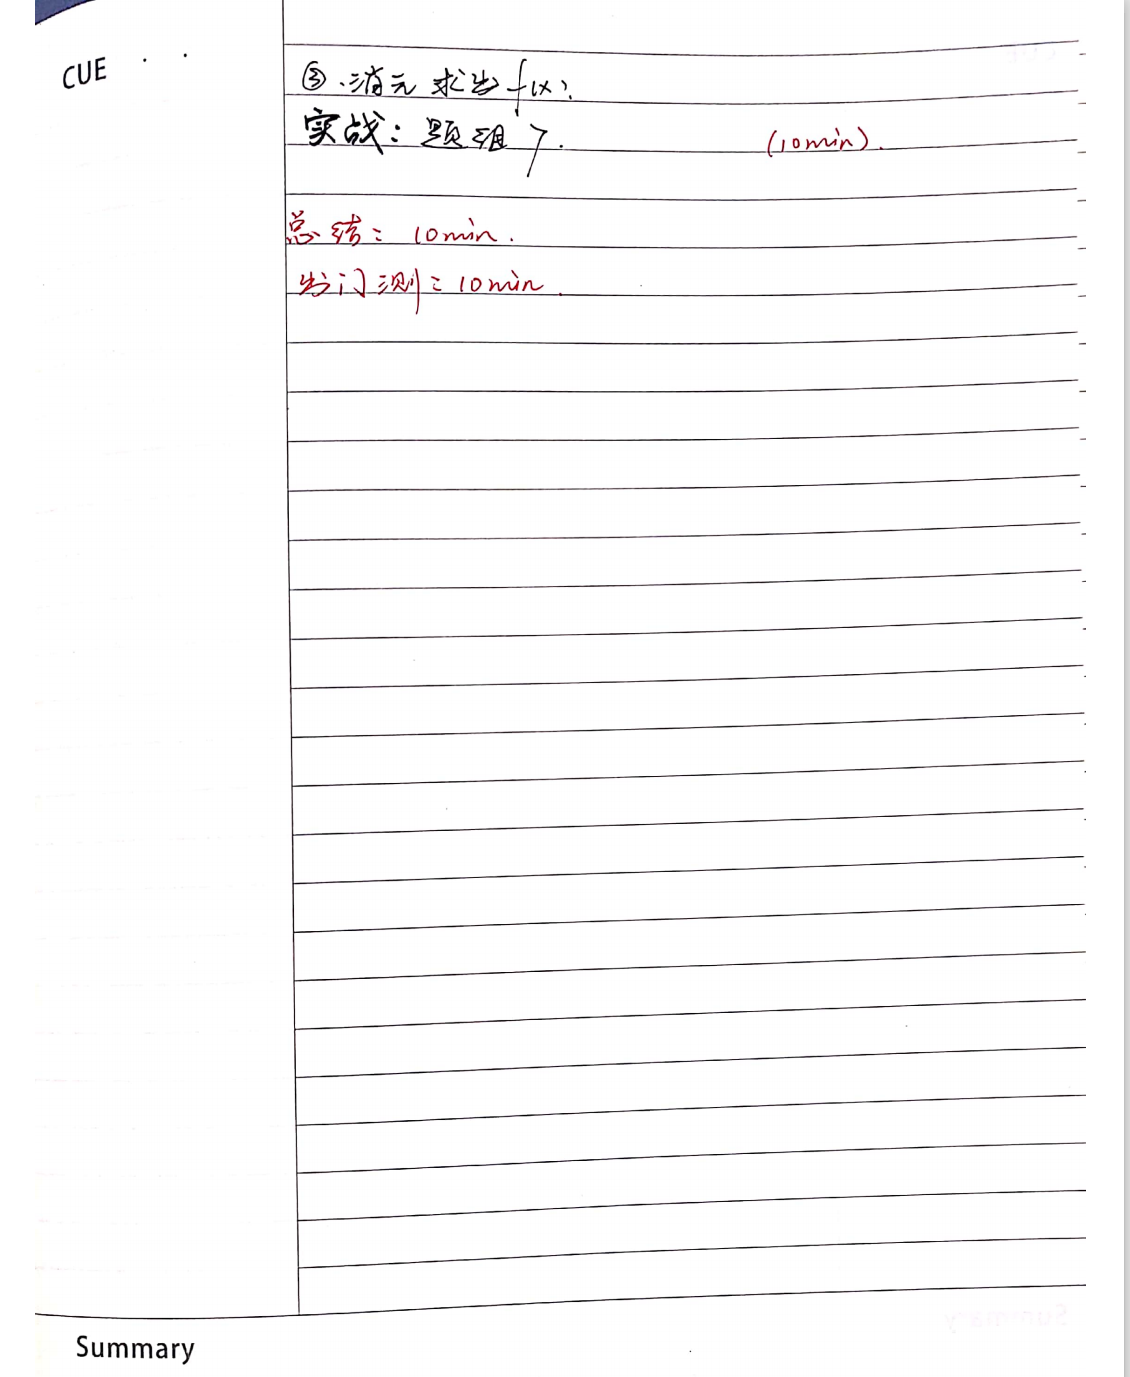 CUE
③.消元求出f(x).
实战：题组7. (10min).
总结：10min.
出门测：10min.
Summary